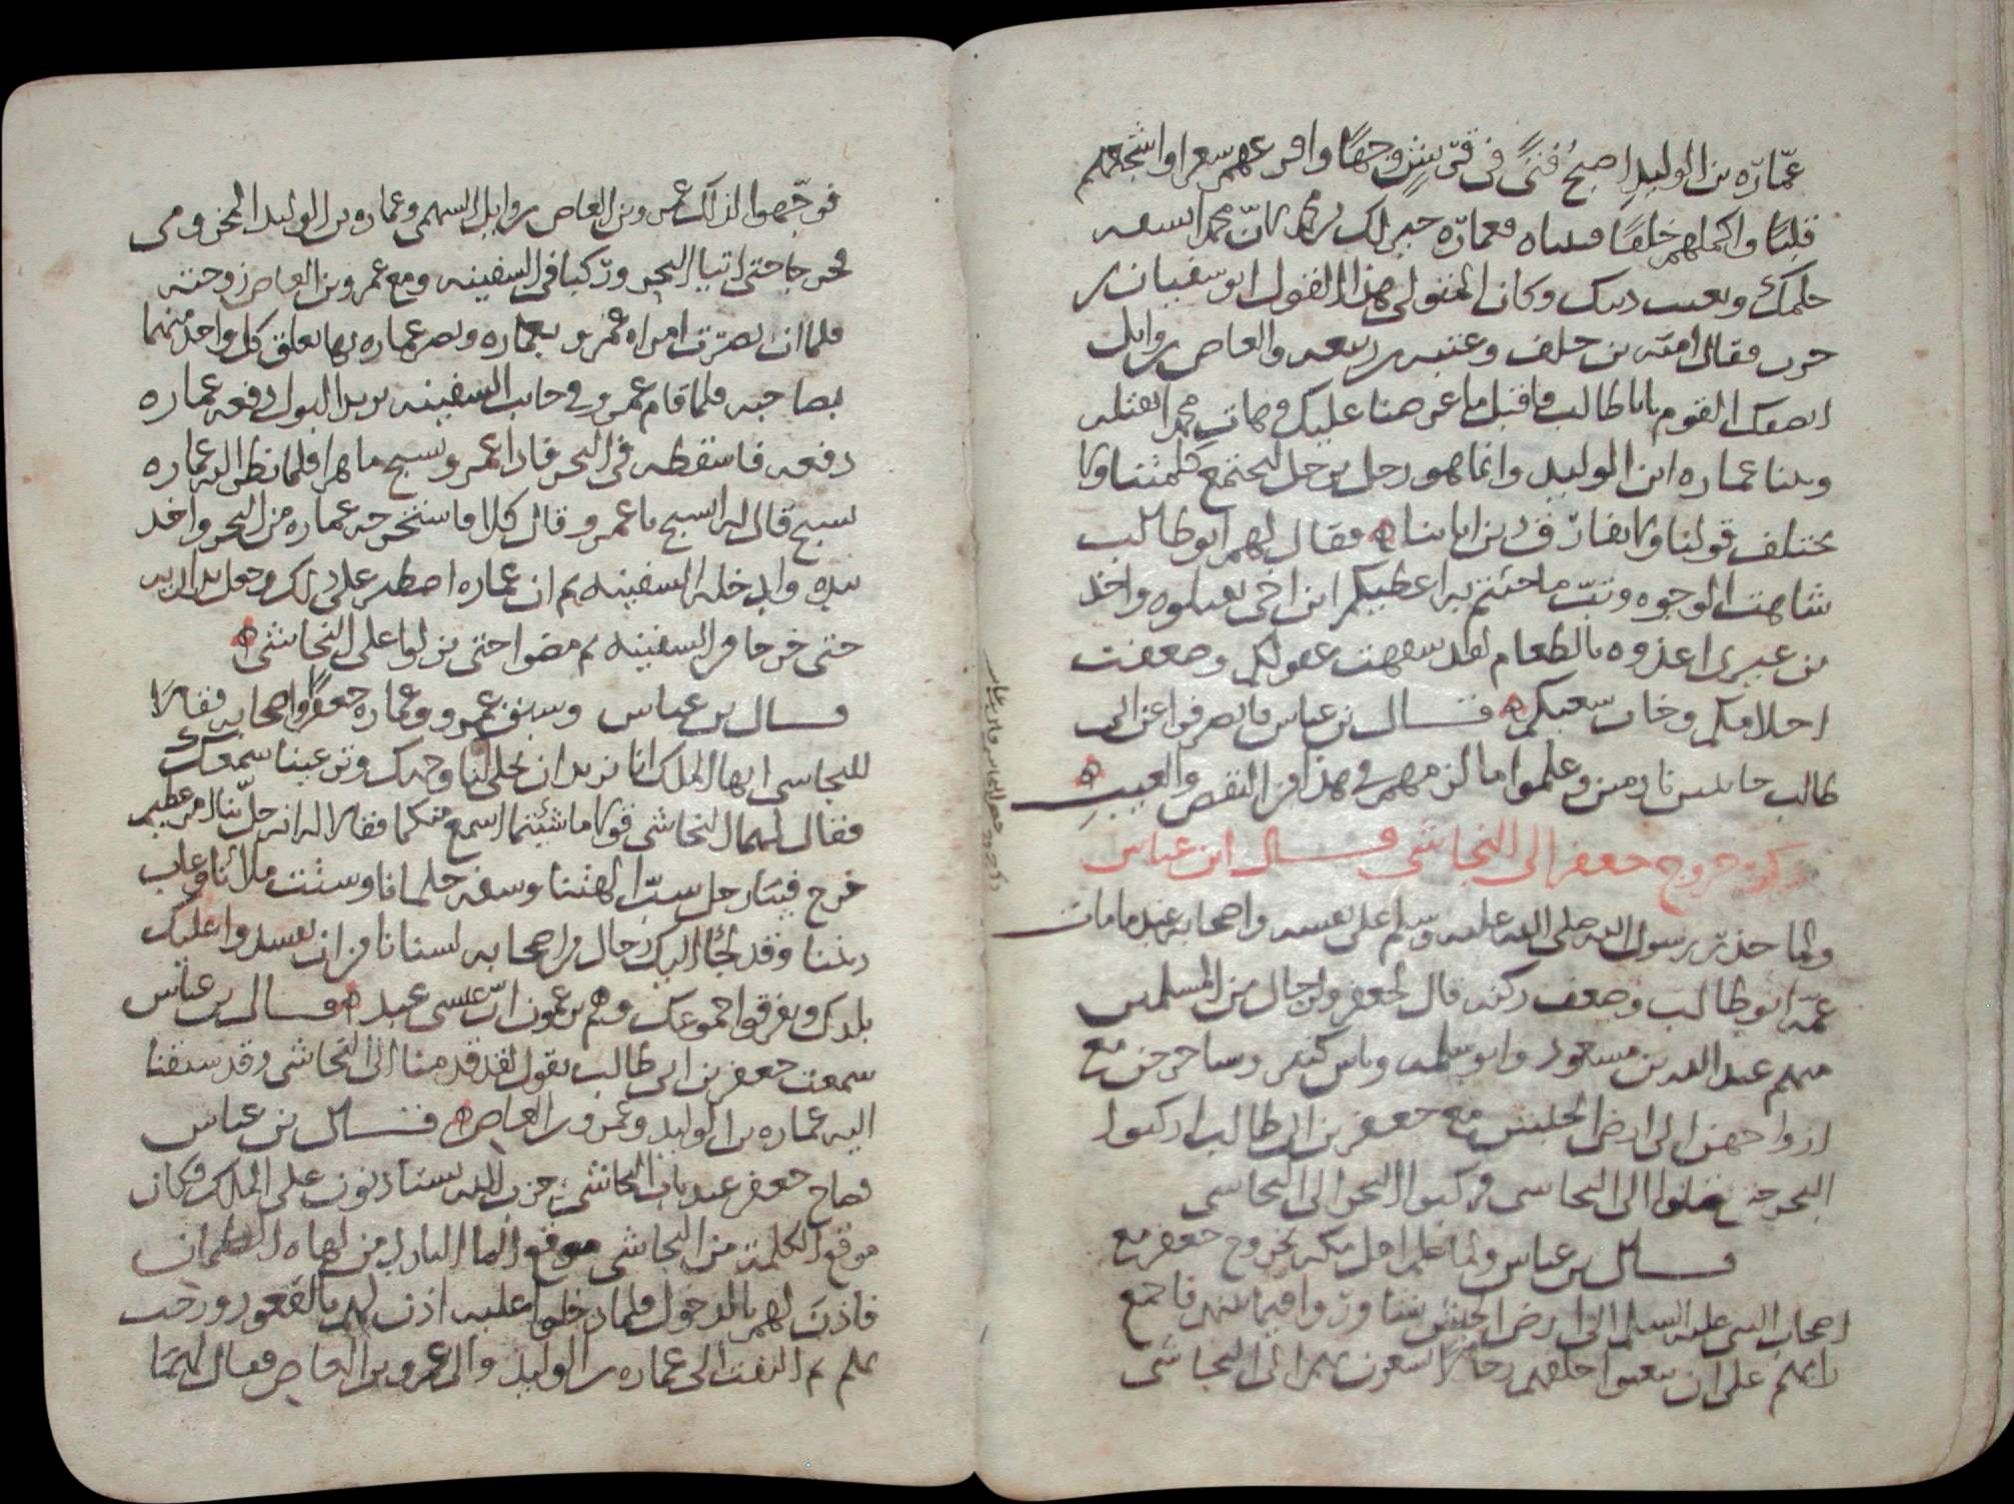 عمّارة بن الوليد اصبح فتىً في قريش وجهًا واقرعهم شعرا واشجعهم
قلبًا واكملهم خلقًا فتبناه فعمارّه خير لك من محمد لانّ محمد اسفه
حلمك وبعيب دينك وكان المتولى هذا القول ابو سفيان بن
حرب فقال اميّه بن خلف وعتبه بن ربيعه والعاص بن وايل
انصفك القوم يابا طالب فاقبل ما عرضنا عليك وهات محمد انقتله
وبننا عماره ابن الوليد وانما هو رجل برجل لتجتمع كلمتنا ولا
يختلف قولنا ولا نفارق دين ابائنا فقال لهم ابو طالب
شاهت الوجوه وتبّ ما جئتم به اعطيكم ابن اخي تقتلوه واخذ
بن غيرى اغذوه بالطعام لقد سفهت عقولكم وضعفت
احلامكم وخاب سعيكم قال بن عباس فانصرفوا عن ابى
طالب خائبين نادمين وعلموا ما لزمهم في هذا من النقص والعيب
ذكر خروج جعفر الى النجاشي قال ابن عباس
ولما حذر رسول الله صلى الله عليه وسلم على نفسه واصحابه عندما مات
عمّه ابو طالب وضعف ركنه قال لجعفر ولرجال من المسلمين
منهم عبد الله بن مسعود وابو سلمه وناس كثير ونساء خرجن مع
ازواجهن الى ارض الحبش مع جعفر بن ابى طالب اركبوا
البحر حتى تصلوا الى النجاشى فركبوا البحر الى النجاشى
قال بن عباس ولما علم اهل مكه بخروج جعفر مع
اصحاب النبي عليه السلم الى ارض الحبش تشاوروا فيما بينهم فاجمع
رايهم على ان يبعثوا خلفهم رجالا يسعون بهم الى النجاشى
فوجّهوا لذلك عمرو بن العاص بن وايل السهمى وعماره بن الوليد المخزومى
فخرجا حتى اتيا البحر وركبا في السفينه ومع عمرو بن العاص زوجته
فلما ان بصرت امراه عمرو بعماره وبصر عماره بها تعلق كل واحد منهما
بصاحبه فلما قام عمرو في جانب السفينه يريد البول دفعه عماره
دفعه فاسقطه في البحر فاذا عمرو يسبح ماهرا فلما نظر اليه عماره
يسبح قال له اتسبح يا عمرو قال كلا فاستخرجه عماره من البحر واخذ
بيده وادخله السفينه ثم ان عماره اصطبر على ذلك وجعل يداريه
حتى خرجا من السفينه ثم مضوا حتى نزلوا على النجاشى
قال بن عباس وسبق عمرو وعماره جعفرًا واصحابه فقالا
للنجاسى ايها الملك انا نريد ان تخلى لنا وجهك وترعينا سمعك
فقال لهما النجاشى قولا ما شئتما اسمع منكما فقالا له انه حلّ بنا امر عظيم
خرج فينا رجل سبّ الهتنا وسفه حلمانا وشتت ملائنا وعاب
ديننا وقد لجأ اليك رجال من اصحابه لسنا نامن ان يفسدوا عليك
بلدك ويفرقوا جموعك وهم يزعمون انّ عيسى عبد قال بن عباس
سمعت جعفر بن ابى طالب يقول لقد قدمنا الى النجاشى وقد سبقنا
اليه عماره بن الوليد وعمرو بن العاص قال بن عباس
فصاح جعفر عند باب النجاشى حزب الله يستاذنون على الملك فكان
موقع الكلمة من النجاشى موقع الما البارد من لهاه الظمان
فاذن لهم بالدخول فلما دخلوا عليه اذن لهم بالقعود ورحب
بهم ثم التفت الى عماره بن الوليد والى عمرو بن العاص فقال لهما